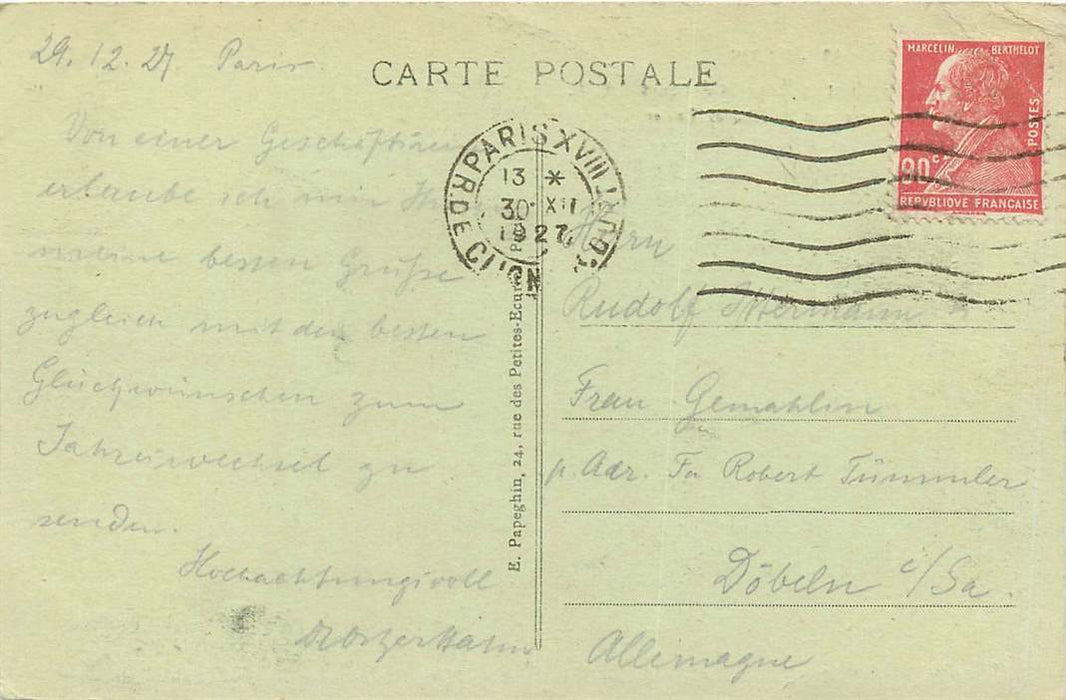 29.12.27. Paris
CARTE POSTALE
MARCELIN BERTHELOT
POSTES
90c
REPVBLIQVE FRANÇAISE
PARIS XVIII
13 *
30 XII
1927
R. DE CLIGN
Von einer
erlaube ich mir
meine besten Grüße
zugleich mit den besten
Glückwünschen zum
Jahreswechsel zu
senden.
Hochachtungsvoll
E. Papeghin, 24, rue des Petites-Ecuries
Herrn
Rudolf
Frau Gemahlin
p. Adr. Fa Robert Tümmler
Döbeln i/Sa.
Allemagne